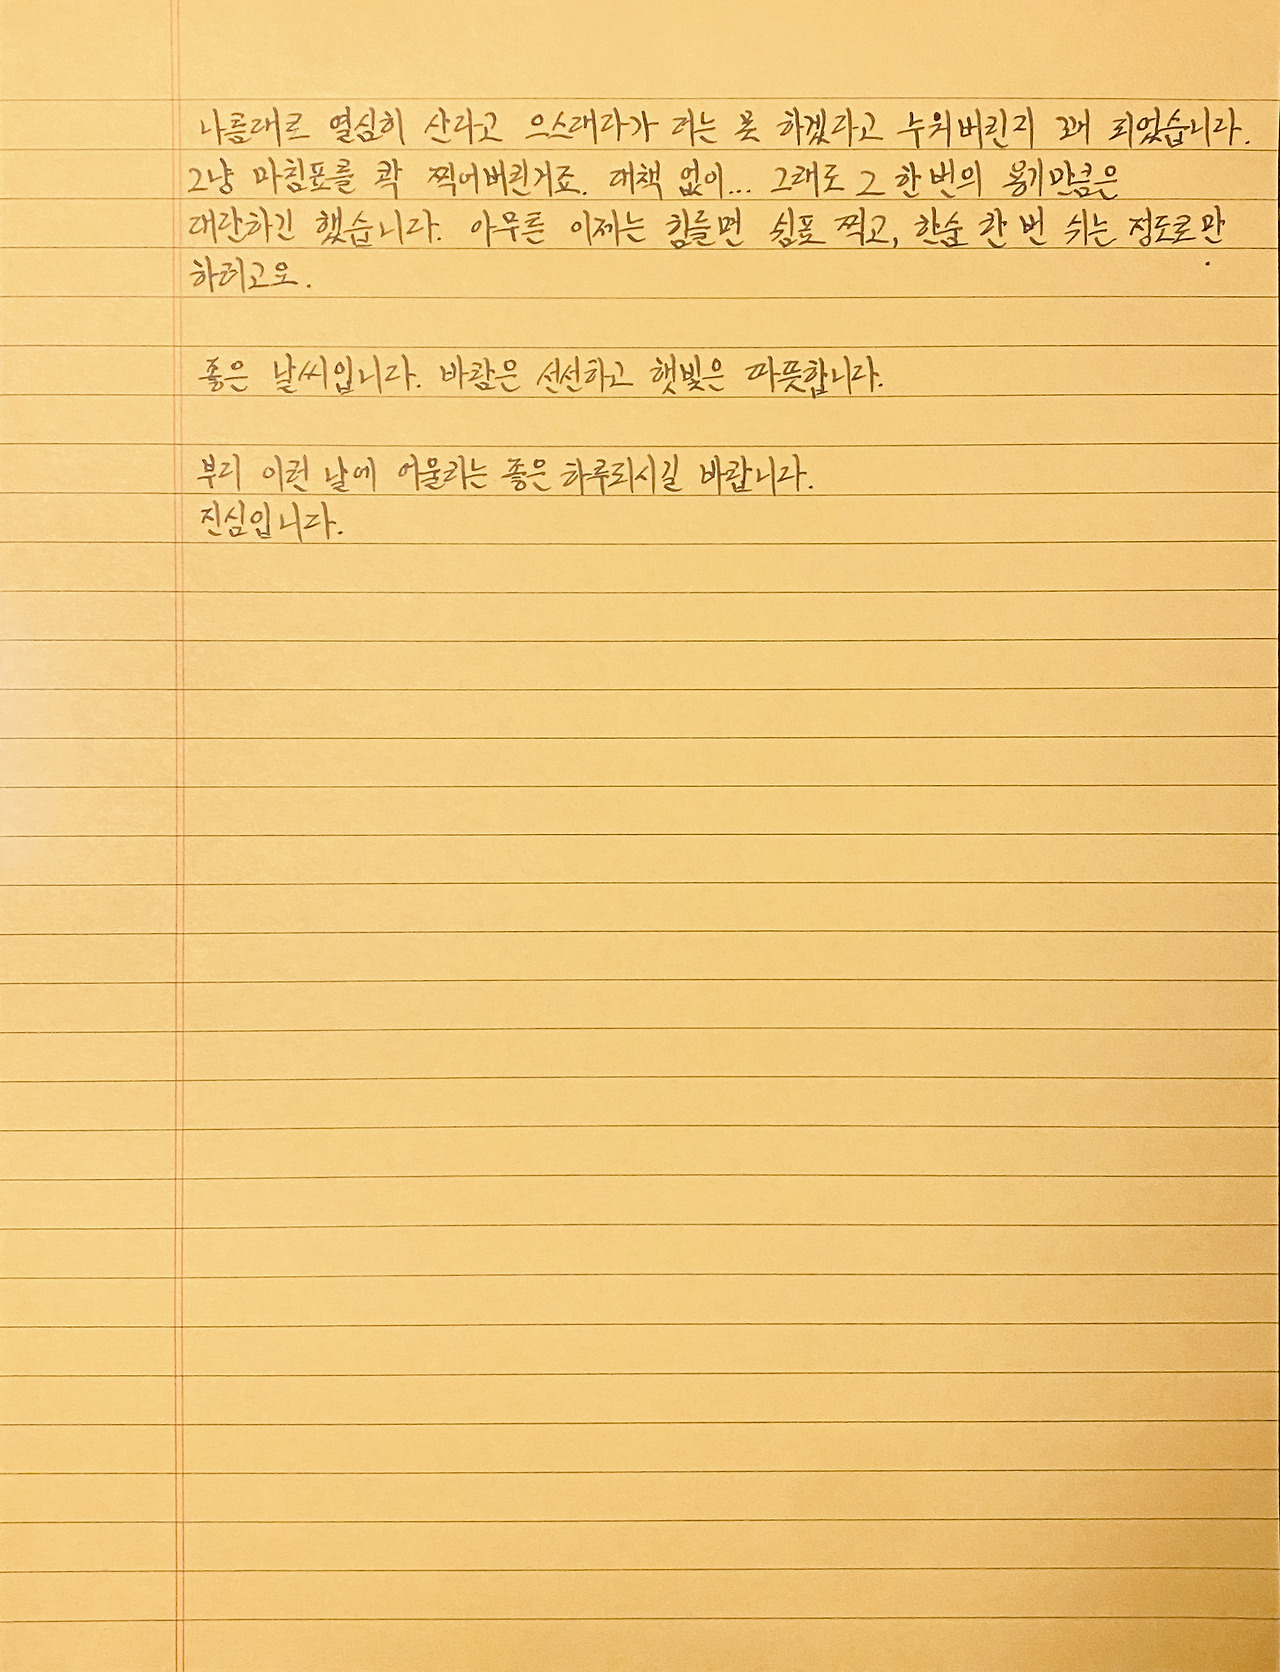 나름대로 열심히 산다고 으스대다가 더는 못 하겠다고 누워버린지 꽤 되었습니다.
그냥 마침표를 콱 찍어버린거죠. 대책 없이... 그래도 그 한 번의 용기만큼은
대단하긴 했습니다. 아무튼 이제는 힘들면 쉼표 찍고, 한숨 한 번 쉬는 정도로만
하려고요.
좋은 날씨입니다. 바람은 선선하고 햇빛은 따뜻합니다.
부디 이런 날에 어울리는 좋은 하루되시길 바랍니다.
진심입니다.